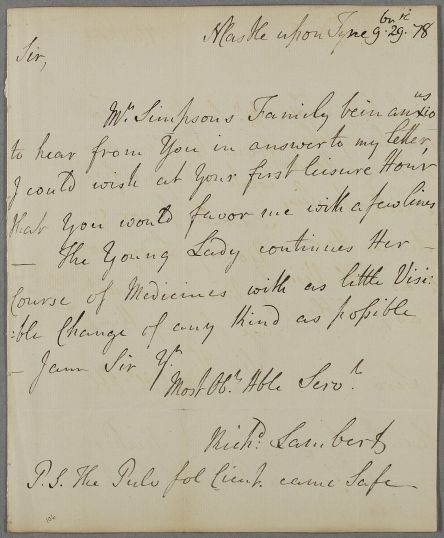 Nastle upon Tyne 9br ye 29. 78
Sir,
Mr. Simpsons Family bein anxious
to hear from You in answer to my letter,
I could wish at Your first leisure Hour
that You would favor me with a few lines
— The Young Lady continues Her —
Course of Medicines with as little Visi:
:ble Change of any Kind as possible
— I am Sir Yr.
Most Obt. Hble Servt.
Richd. Lambert
P.S. The Pulv fol Cicut. came Safe